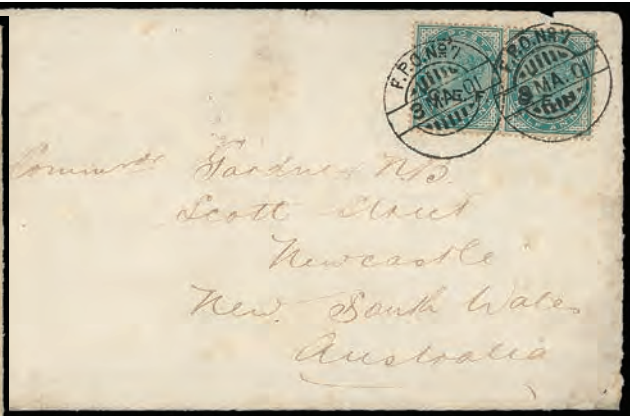 F.P.O. No 7
8 MA. 01
F.P.O. No 7
8 MA. 01
Gardner N.B.
Scott Street
Newcastle
New South Wales
Australia